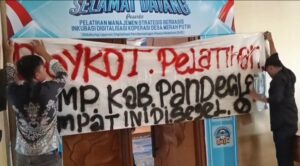 SELAMAT DATANG
Peserta
PELATIHAN MANAJEMEN STRATEGIS BERBASIS
INKUBASI DIGITALISASI KOPERASI DESA MERAH PUTIH
BOYKOT. Pelatihan.
MP KAB. PANDEGLA
MPAT INI DISEGEL.